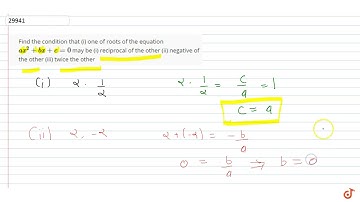 29941
Find the condition that (i) one of roots of the equation
ax² + bx + c = 0 may be (i) reciprocal of the other (ii) negative of
the other (iii) twice the other
(i) 2 . 1/2 2 . 1/2 = c/a = 1
c = a
(ii) 2, -2 2+(-2) = -b/a
0 = b/a ⇒ b = 0